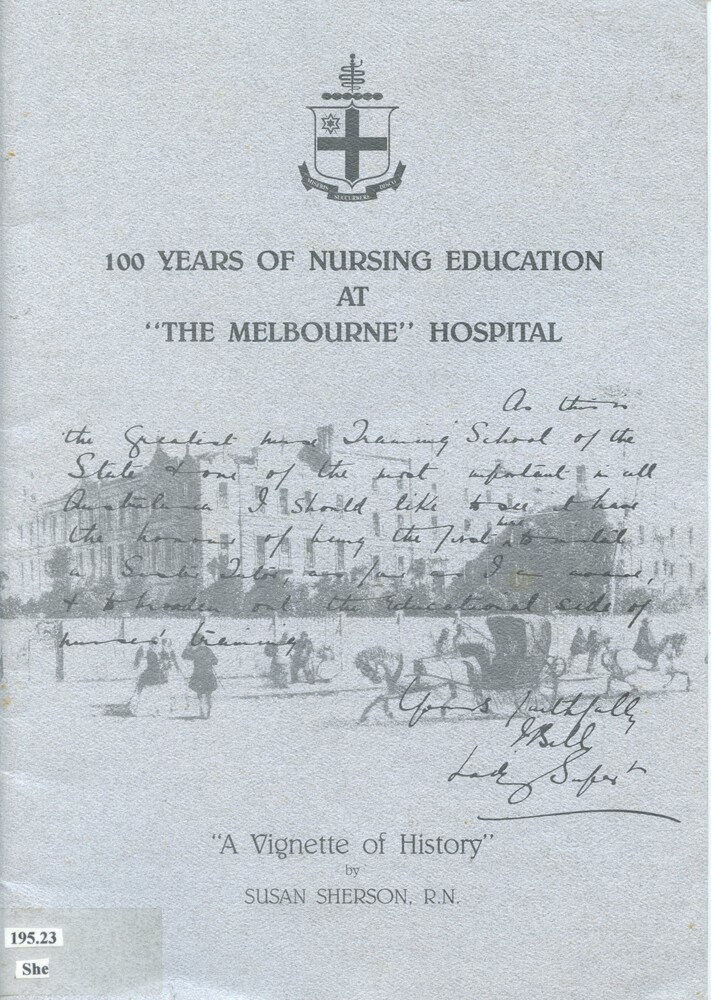 MISERIS SUCCURRERE DISCO
100 YEARS OF NURSING EDUCATION
AT
"THE MELBOURNE" HOSPITAL
As this is
the greatest nurse Training School of the
State & one of the most important in all
Australasia I should like to see it have
the honour of being the first here to
a Sister Tutor, as far as I am aware,
& to broaden out the educational side of
nurses' training
Yours faithfully
J Bell
Lady Supert
"A Vignette of History"
by
SUSAN SHERSON, R.N.
195.23
She